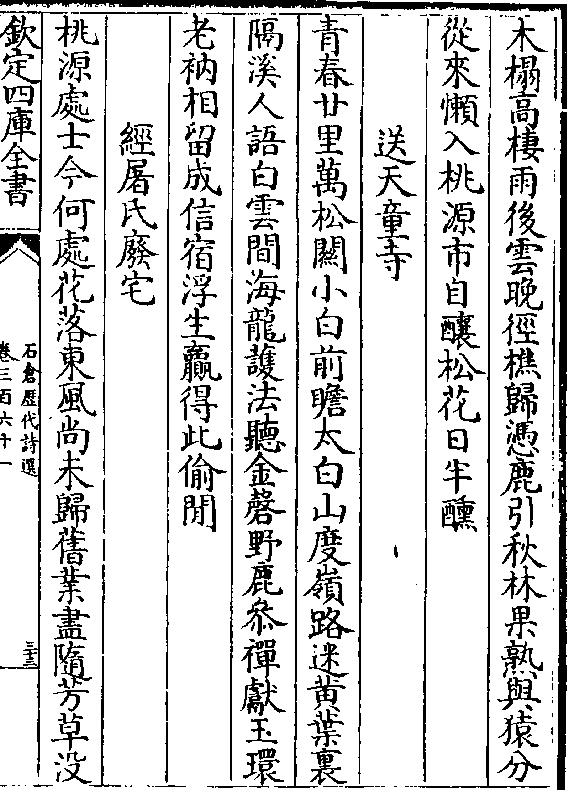 木榻高棲雨後雲晚徑樵歸憑鹿引秋林果熟與猿分
從來懶入桃源市自釀松花日半醺
送天童寺
青春廿里萬松關小白前瞻太白山度嶺路迷黄葉裏
隔溪人語白雲間海龍護法聽金磬野鹿叅禪獻玉環
老衲相留成信宿浮生贏得此偷閒
經屠氏廢宅
桃源處士今何處花落東風尚未歸舊業盡隨芳草没
欽定四庫全書
石倉歷代詩選
卷三百六十一
三十三